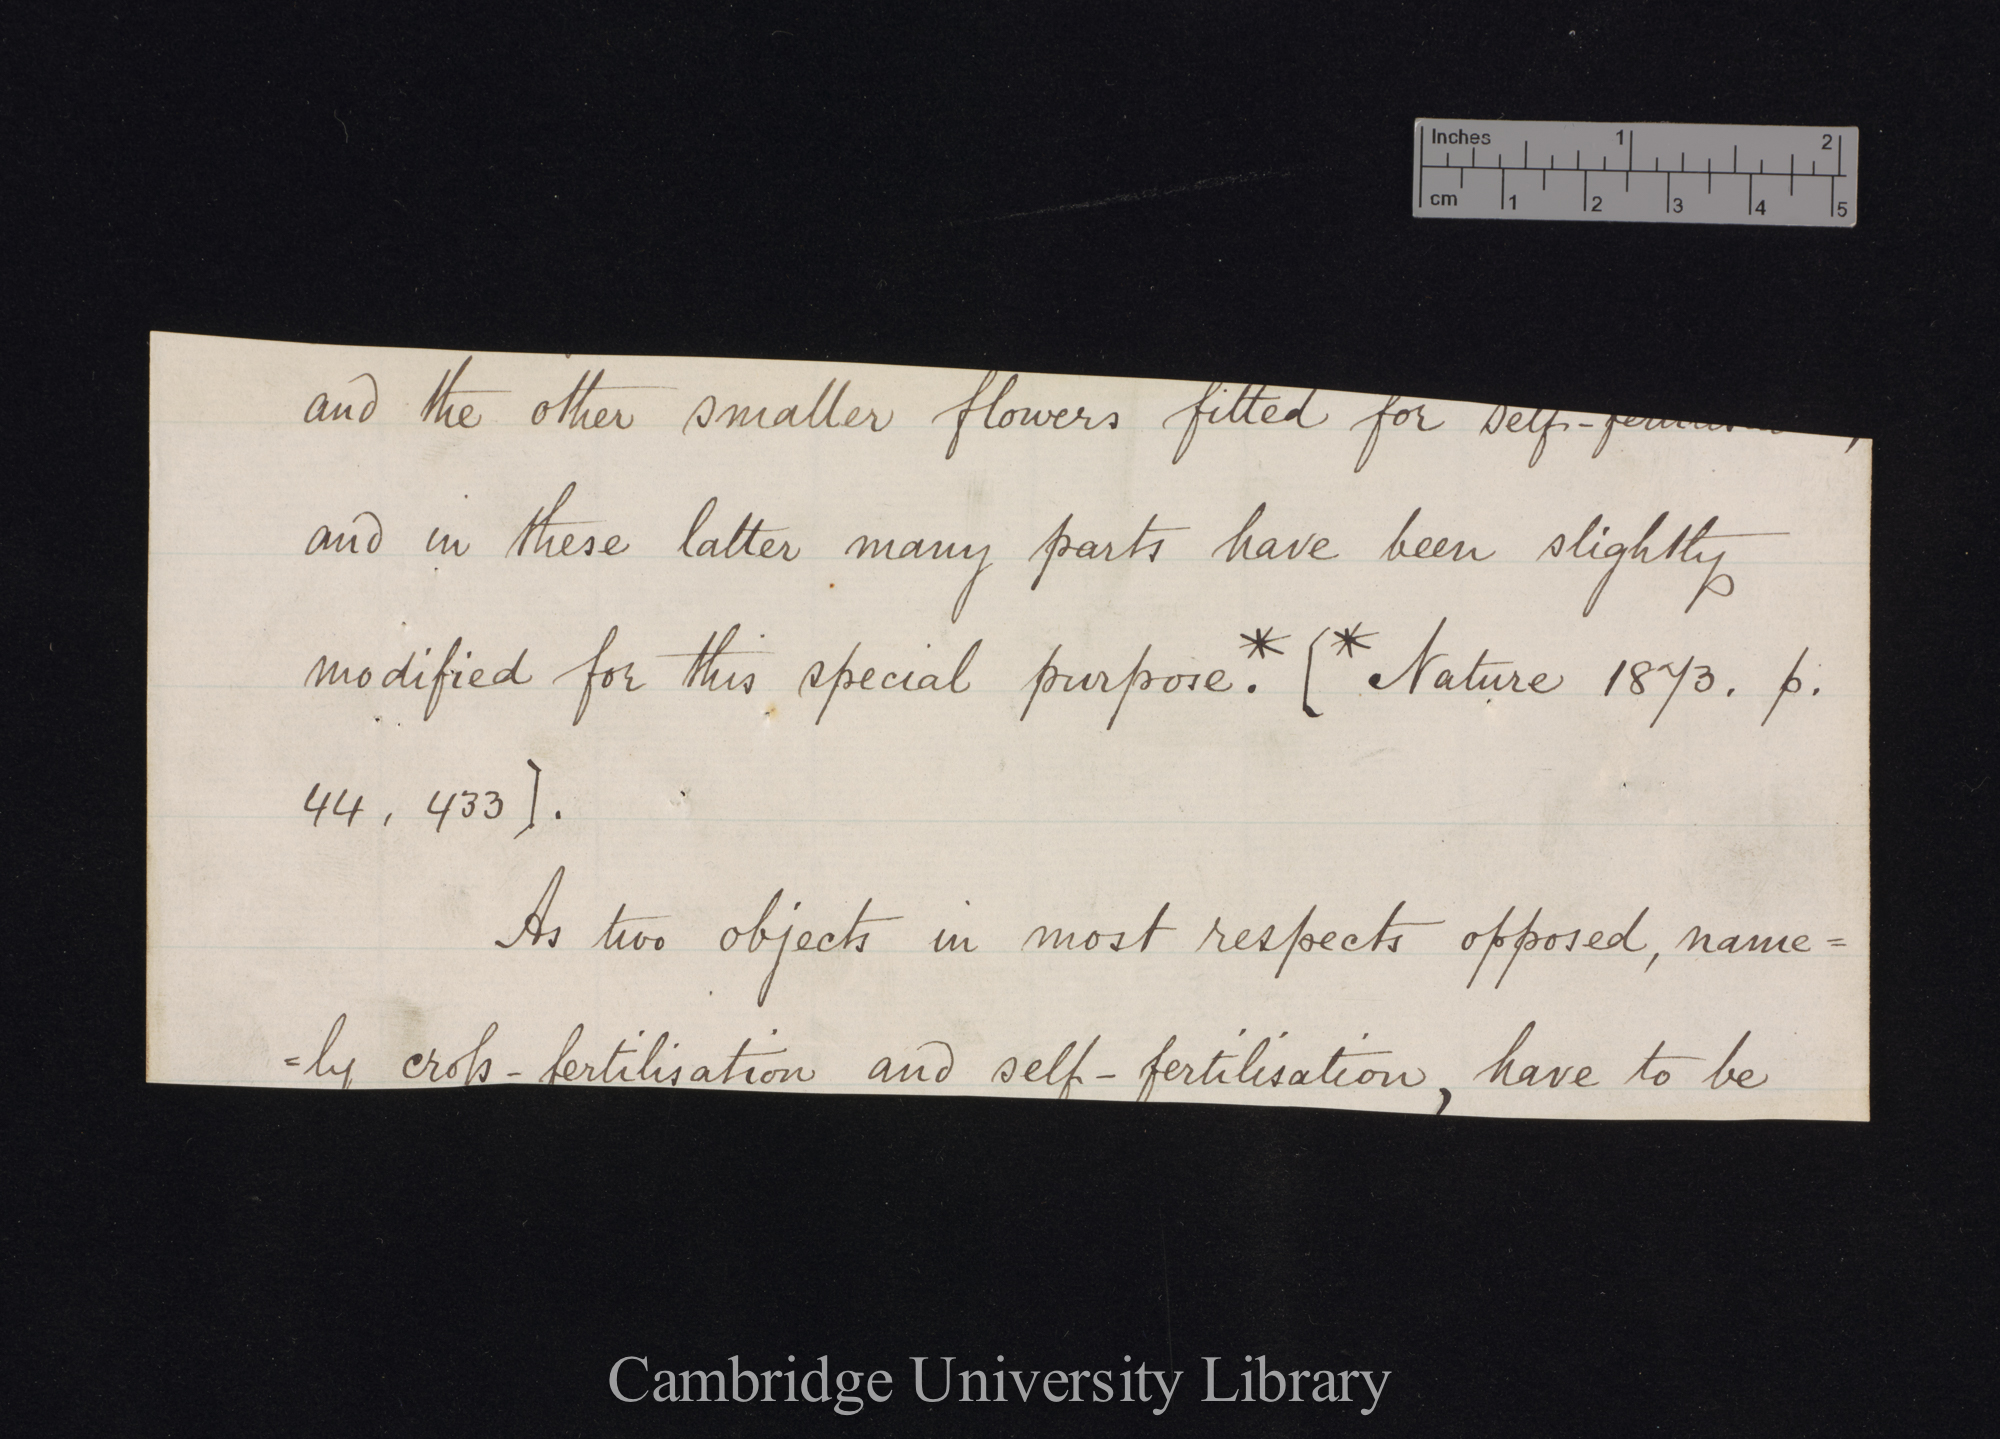 Inches 1 2
cm 1 2 3 4 5
and the other smaller flowers fitted for self-
and in these latter many parts have been slightly
modified for this special purpose.* [* Nature 1873. p.
44, 433].
As two objects in most respects opposed, name=
=ly cross-fertilisation and self-fertilisation, have to be
Cambridge University Library